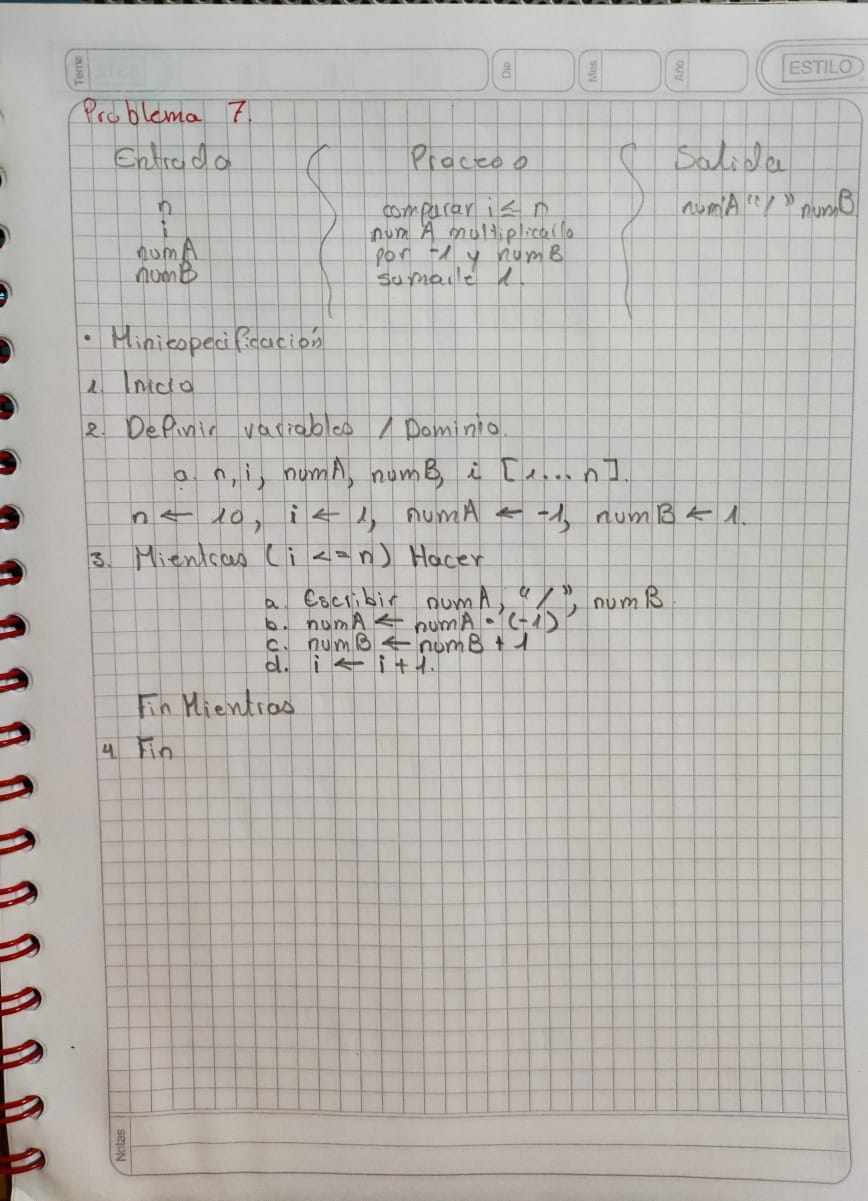 Tema Día Mes Año ESTILO
Problema 7.
Entrada Proceso Salida
n comparar i ≤ n numA "/" numB
i num A multiplicallo
numA por -1 y numB
numB sumarle 1.
• Miniespecificación
1. Inicio
2. Definir variables / Dominio.
a. n, i, numA, numB, i [1...n].
n ← 10, i ← 1, numA ← -1, numB ← 1.
3. Mientras (i <= n) Hacer
a. Escribir numA, "/", numB.
b. numA ← numA * (-1)
c. numB ← numB + 1
d. i ← i + 1.
Fin Mientras
4. Fin
Notas